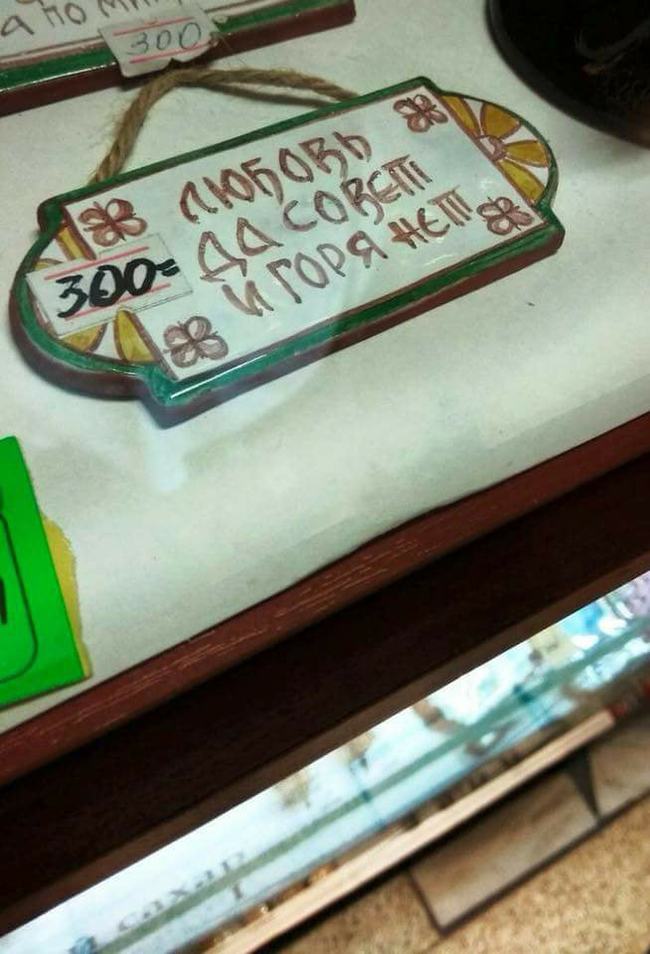 а по
300
ЛЮБОВЬ
ДА СОВЕТ
И ГОРЯ НЕТ
300=
й сахар